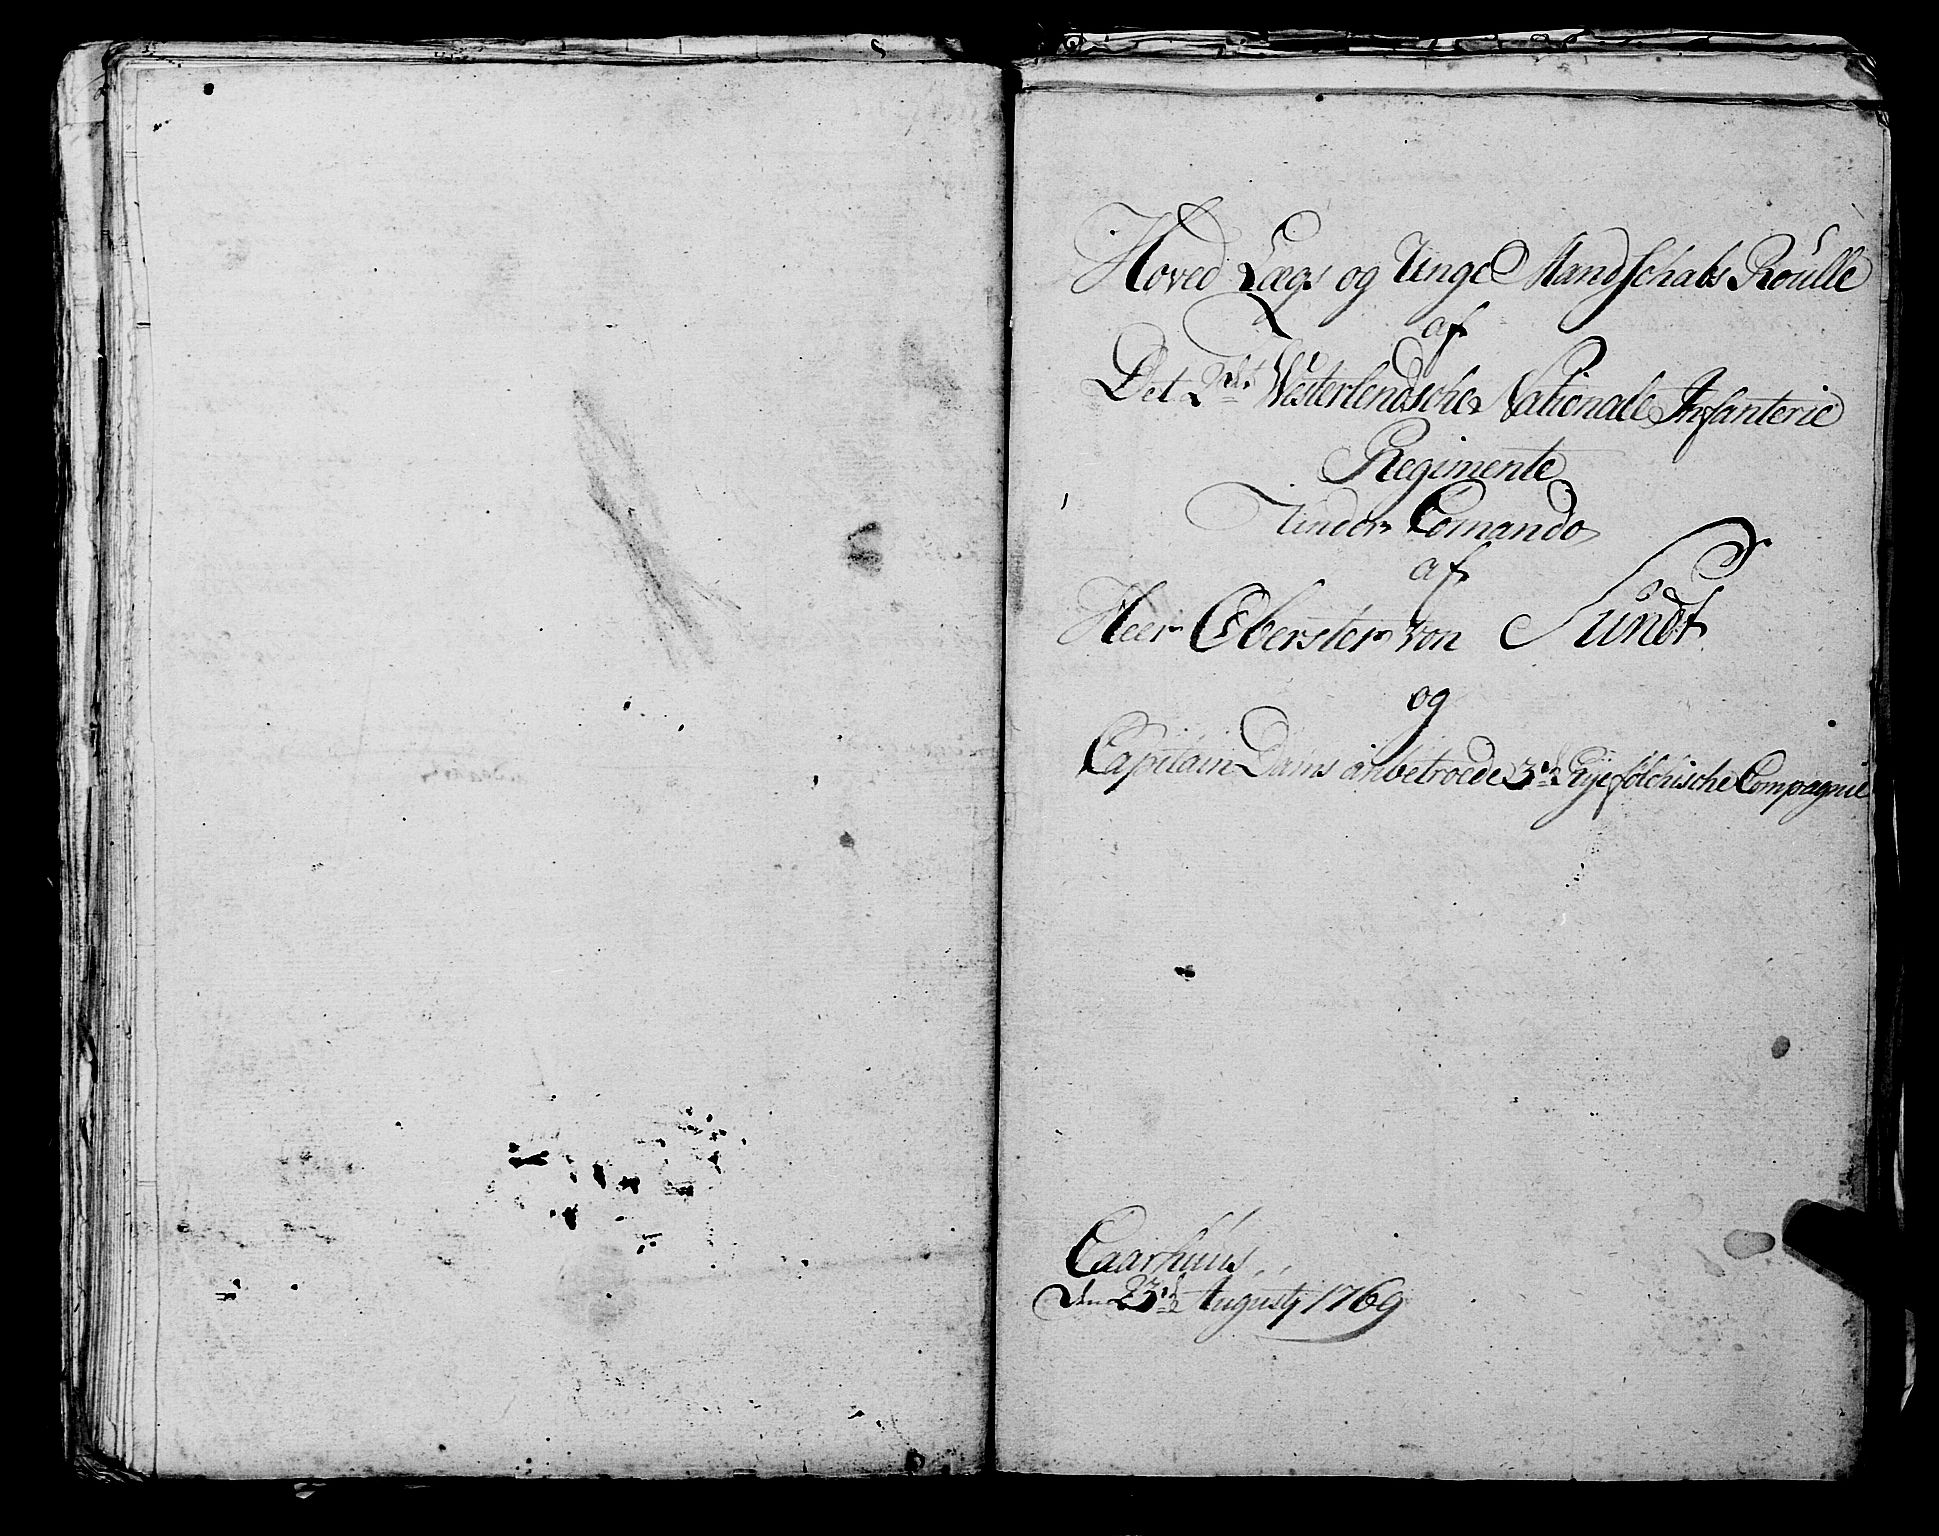 Hoved Lægs og Unge Mandschabs Roulle
af
Det 2det Westerlendsche Nationale Infanterie
Regimente
Under Comando
af
Herr Oberster von Sundt
og
Capitain Dams anbetroede 3die Ryefölchische Compagnie
Aarhuus
den 23de Augusty 1769